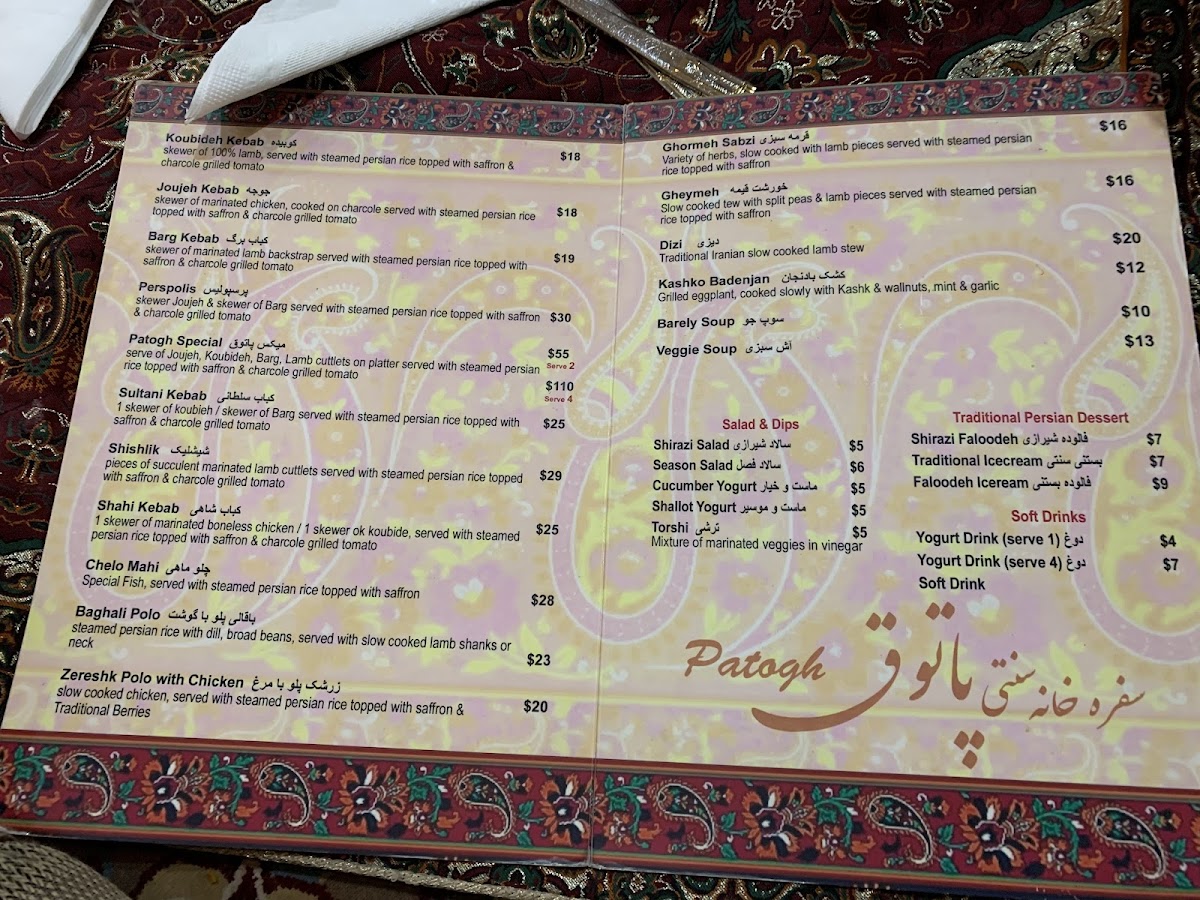 Koubideh Kebab کوبیده
skewer of 100% lamb, served with steamed persian rice topped with saffron &
charcole grilled tomato
$18
Joujeh Kebab جوجه
skewer of marinated chicken, cooked on charcole served with steamed persian rice
topped with saffron & charcole grilled tomato
$18
Barg Kebab کباب برگ
skewer of marinated lamb backstrap served with steamed persian rice topped with
saffron & charcole grilled tomato
$19
Perspolis پرسپولیس
skewer Joujeh & skewer of Barg served with steamed persian rice topped with saffron
& charcole grilled tomato
$30
Patogh Special میکس پاتوق
serve of Joujeh, Koubideh, Barg, Lamb cuttlets on platter served with steamed persian
rice topped with saffron & charcole grilled tomato
$55
Serve 2
$110
Serve 4
Sultani Kebab کباب سلطانی
1 skewer of koubieh / skewer of Barg served with steamed persian rice topped with
saffron & charcole grilled tomato
$25
Shishlik شیشلیک
pieces of succulent marinated lamb cuttlets served with steamed persian rice topped
with saffron & charcole grilled tomato
$29
Shahi Kebab کباب شاهی
1 skewer of marinated boneless chicken / 1 skewer ok koubide, served with steamed
persian rice topped with saffron & charcole grilled tomato
$25
Chelo Mahi چلو ماهی
Special Fish, served with steamed persian rice topped with saffron
$28
Baghali Polo باقالی پلو با گوشت
steamed persian rice with dill, broad beans, served with slow cooked lamb shanks or
neck
$23
Zereshk Polo with Chicken زرشک پلو با مرغ
slow cooked chicken, served with steamed persian rice topped with saffron &
Traditional Berries
$20
Ghormeh Sabzi قرمه سبزی
Variety of herbs, slow cooked with lamb pieces served with steamed persian
rice topped with saffron
$16
Gheymeh خورشت قیمه
Slow cooked tew with split peas & lamb pieces served with steamed persian
rice topped with saffron
$16
Dizi دیزی
Traditional Iranian slow cooked lamb stew
$20
Kashko Badenjan کشک بادنجان
Grilled eggplant, cooked slowly with Kashk & wallnuts, mint & garlic
$12
Barely Soup سوپ جو $10
Veggie Soup آش سبزی $13
Salad & Dips
Shirazi Salad سالاد شیرازی $5
Season Salad سالاد فصل $6
Cucumber Yogurt ماست و خیار $5
Shallot Yogurt ماست و موسیر $5
Torshi ترشی $5
Mixture of marinated veggies in vinegar
Traditional Persian Dessert
Shirazi Faloodeh فالوده شیرازی $7
Traditional Icecream بستنی سنتی $7
Faloodeh Iceream فالوده بستنی $9
Soft Drinks
Yogurt Drink (serve 1) دوغ $4
Yogurt Drink (serve 4) دوغ $7
Soft Drink
Patogh پاتوق
سفره خانه سنتی